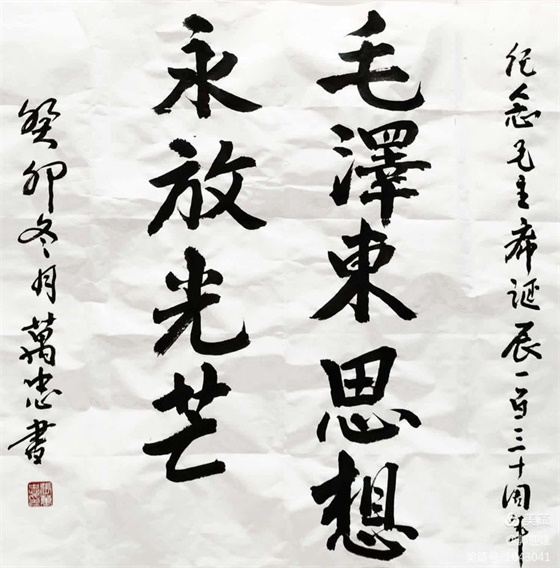 纪念毛主席诞辰一百三十周年
毛澤東思想
永放光芒
癸卯冬月萬忠書